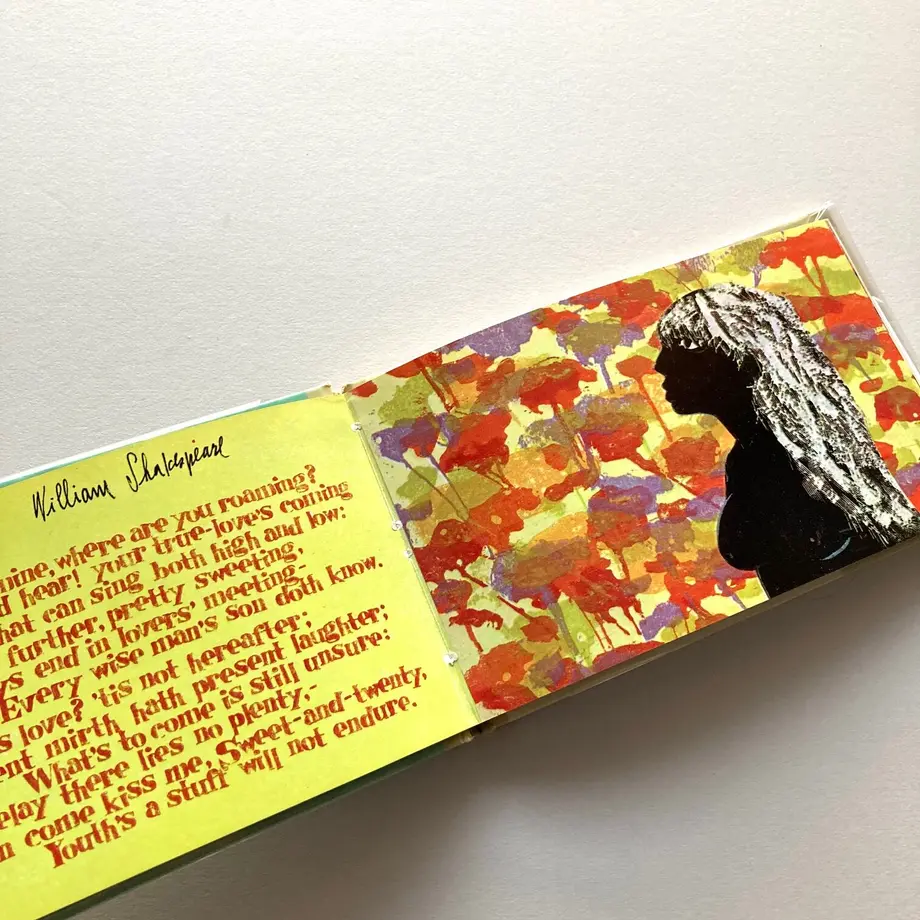 William Shakespeare
mine, where are you roaming?
hear! your true-love's coming
can sing both high and low:
further, pretty sweeting,
end in lovers' meeting-
Every wise man's son doth know.
love? 'tis not hereafter;
mirth hath present laughter;
What's to come is still unsure:
there lies no plenty,-
come kiss me, Sweet-and-twenty,
Youth's a stuff will not endure.